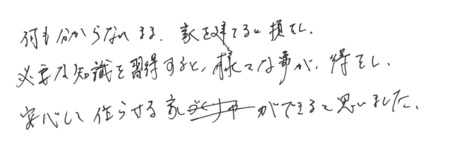 何も分からないまま、家を建てると損をし、
必要な知識を習得すると、様々な事が、得をし、
安心して住らせる家ができると思いました。